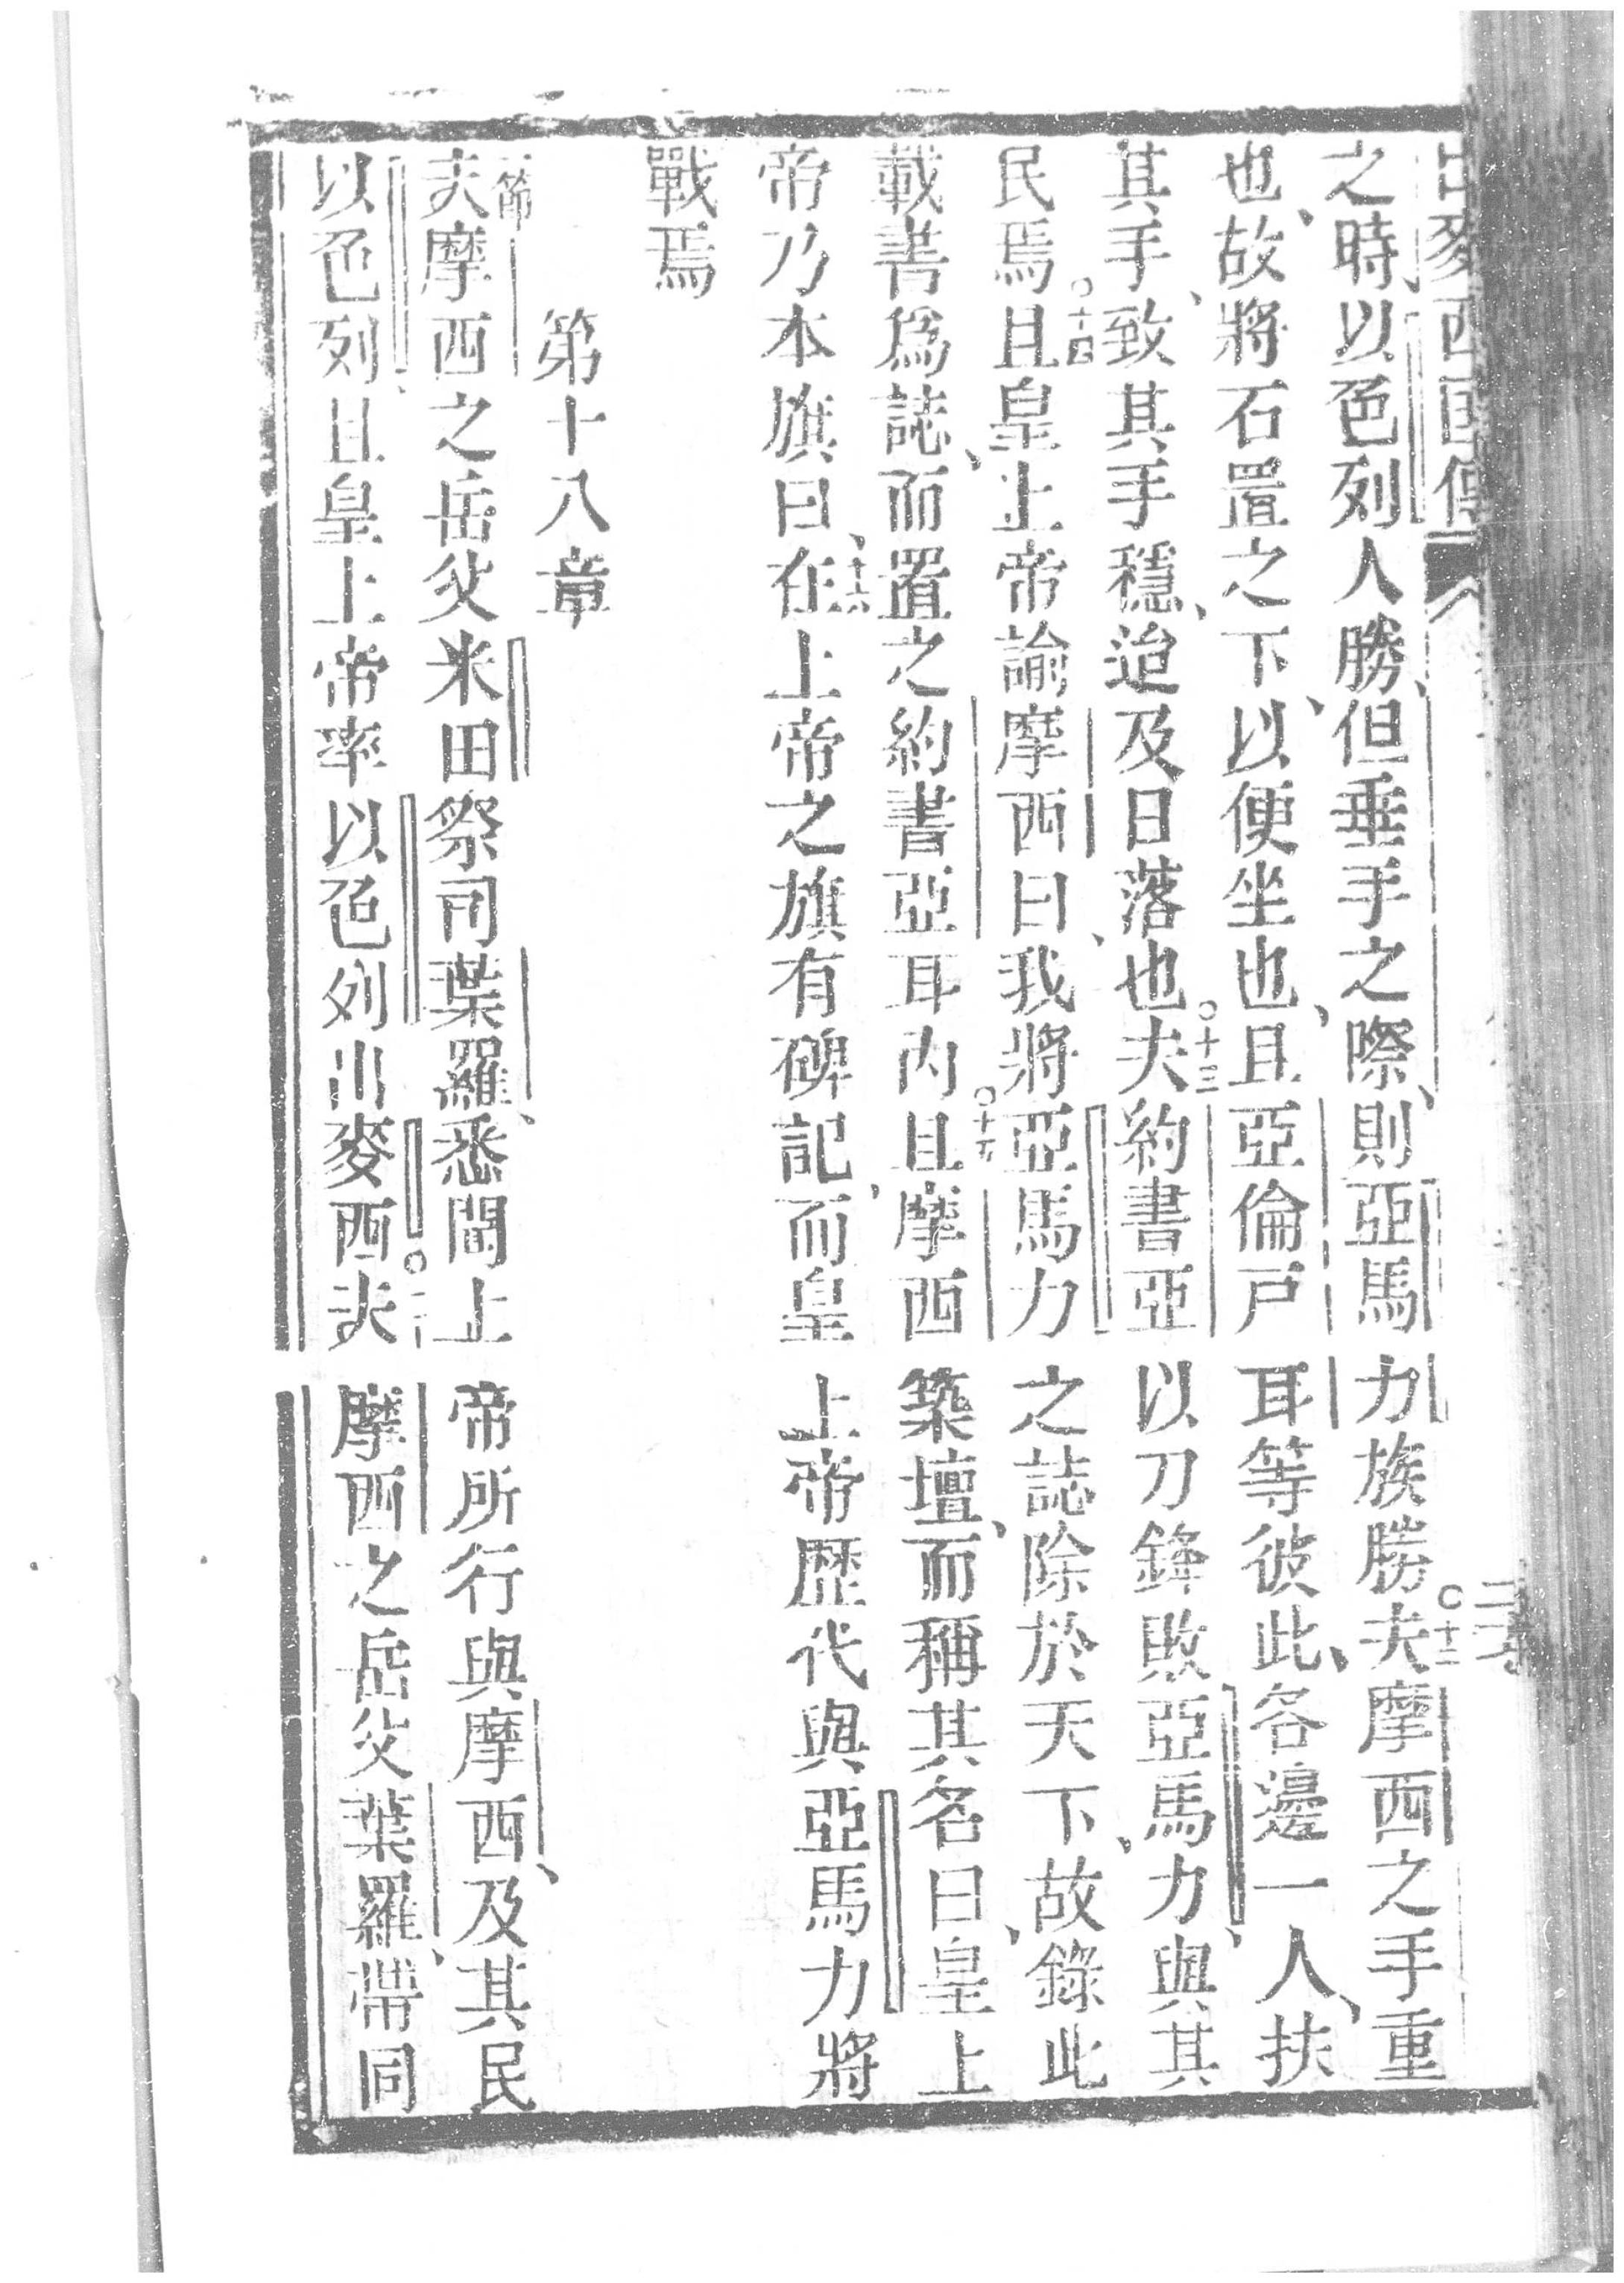 出麥西國傳
之時、以色列人勝、但垂手之際、則亞馬力族勝○十二夫摩西之手重
也、故將石置之下、以便坐也、且亞倫戶耳等彼此、各邊一人、扶
其手、致其手穩、迨及日落也○十三夫約書亞以刀鋒敗亞馬力、與其
民焉○十四且皇上帝諭摩西曰、我將亞馬力之誌除於天下、故錄此
載書爲誌、而置之約書亞耳內○十五且摩西築壇、而稱其名曰、皇上
帝乃本旗曰、十六在上帝之旗有碑記、而皇上帝歷代與亞馬力將
戰焉
第十八章
一節夫摩西之岳父米田祭司葉羅、悉聞上帝所行與摩西、及其民
以色列、且皇上帝率以色列出麥西○二夫摩西之岳父葉羅、帶同